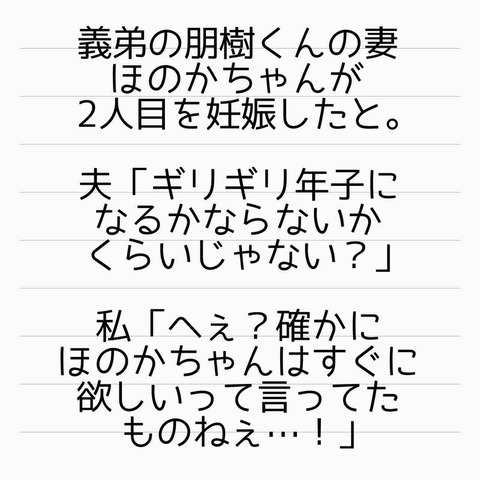 義弟の朋樹くんの妻
ほのかちゃんが
2人目を妊娠したと。
夫「ギリギリ年子に
なるかならないか
くらいじゃない？」
私「へぇ？確かに
ほのかちゃんはすぐに
欲しいって言ってた
ものねぇ…！」